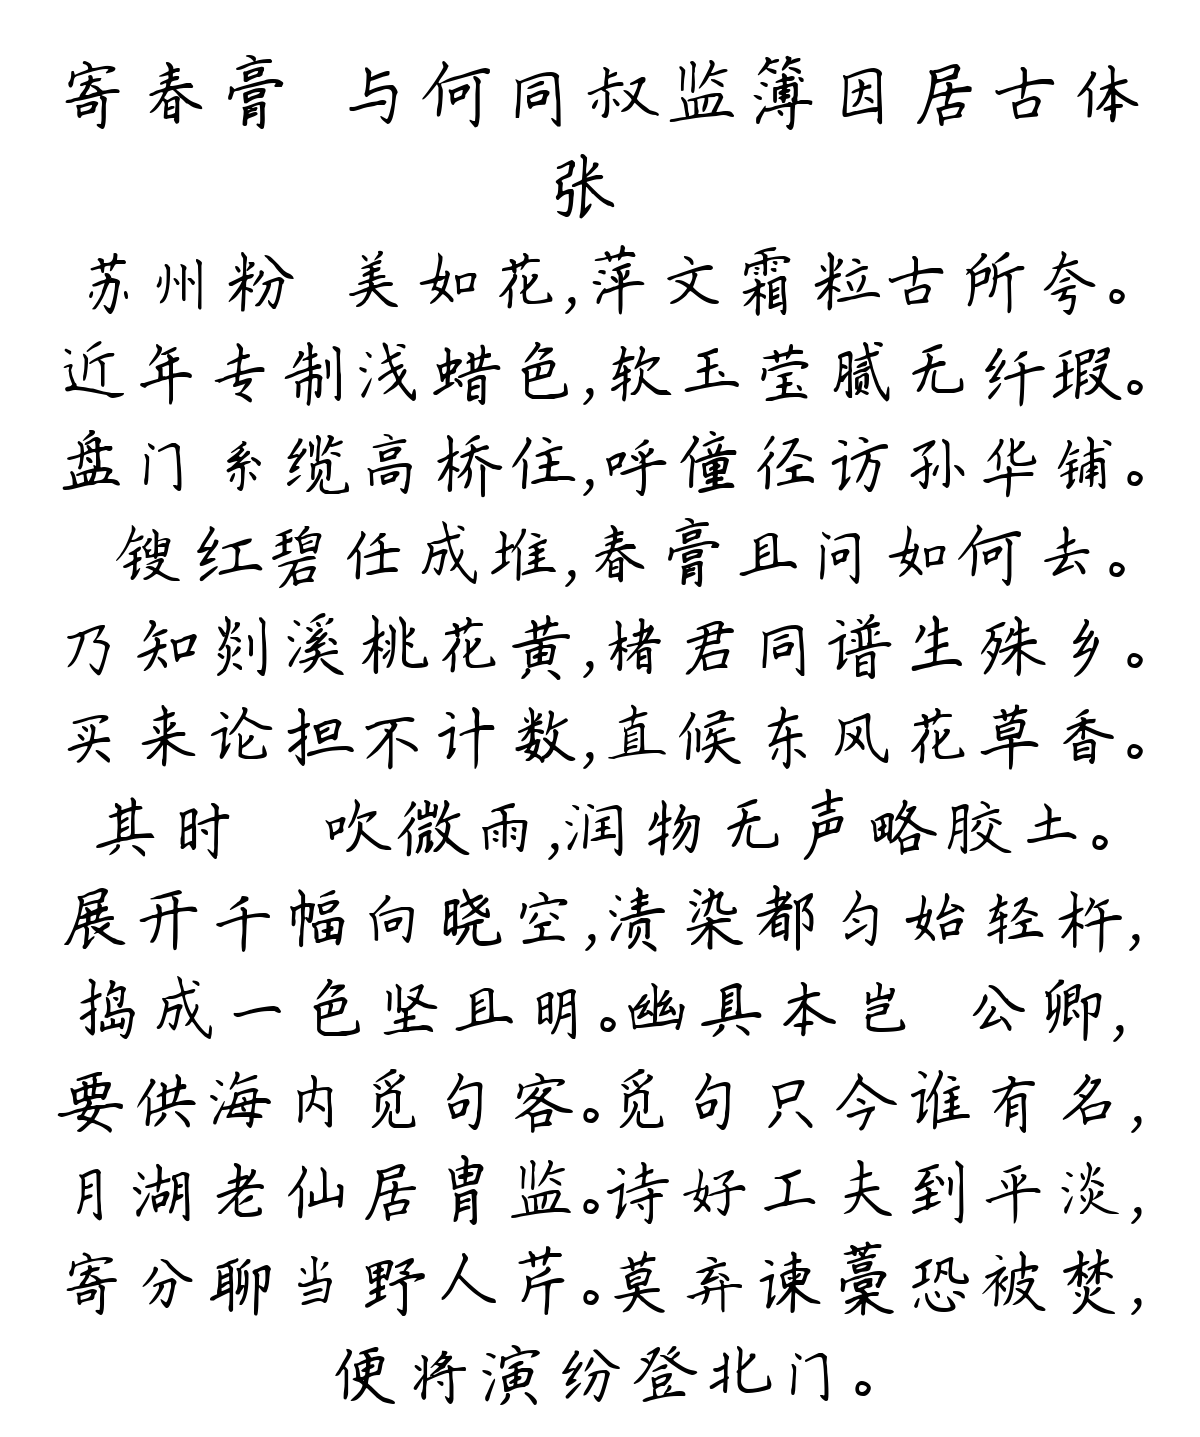 寄春膏 与何同叔监簿因居古体
张
苏州粉 美如花,萍文霜粒古所夸。
近年专制浅蜡色,软玉莹腻无纤瑕。
盘门系缆高桥住,呼僮径访孙华铺。
锼红碧任成堆,春膏且问如何去。
乃知剡溪桃花黄,楮君同谱生殊乡。
买来论担不计数,直候东风花草香。
其时 吹微雨,润物无声略胶土。
展开千幅向晓空,渍染都匀始轻杵,
捣成一色坚且明。幽具本岂 公卿,
要供海内觅句客。觅句只今谁有名,
月湖老仙居胄监。诗好工夫到平淡,
寄分聊当野人芹。莫弃谏藁恐被焚,
便将演纷登北门。